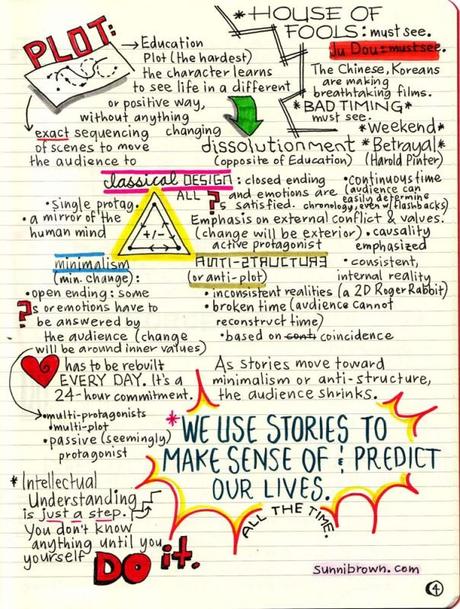 *HOUSE OF
FOOLS: must see.
Ju Dou = must see.
The Chinese, Koreans
are making
breathtaking films.
*BAD TIMING*
must see.
*Weekend*
*Betrayal*
(Harold Pinter)
PLOT:
Education
Plot (the hardest)
the character learns
to see life in a different
or positive way,
without anything
changing
exact sequencing
of scenes to move
the audience to
dissolutionment
(opposite of Education)
classical DESIGN: closed ending
ALL ?s and emotions are
satisfied.
•continuous time
(audience can
easily determine
chronology, even w/flashbacks)
•single protag.
•a mirror of the
human mind
+/-
Emphasis on external conflict & values.
(change will be exterior)
active protagonist
•causality
emphasized
•consistent,
internal reality
(a 2D Roger Rabbit)
minimalism
(min. change):
•open ending: some
?s or emotions have to
be answered by
the audience (change
will be around inner values)
•multi-protagonists
•multi-plot
•passive (seemingly)
protagonist
ANTI-STRUCTURE
(or anti-plot)
•inconsistent realities
•broken time (audience cannot
reconstruct time)
•based on cont. coincidence
has to be rebuilt
EVERY DAY. It's a
24-hour commitment.
As stories move toward
minimalism or anti-structure,
the audience shrinks.
*WE USE STORIES TO
MAKE SENSE OF & PREDICT
OUR LIVES.
ALL THE TIME.
*Intellectual
Understanding
is just a step.
You don't know
anything until you
yourself DO it.
sunnibrown.com
4